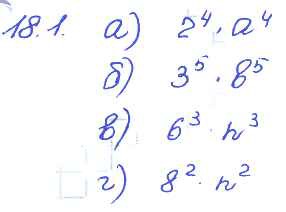 18.1. а) 2⁴ · a⁴
б) 3⁵ · b⁵
в) 6³ · n³
г) 8² · n²